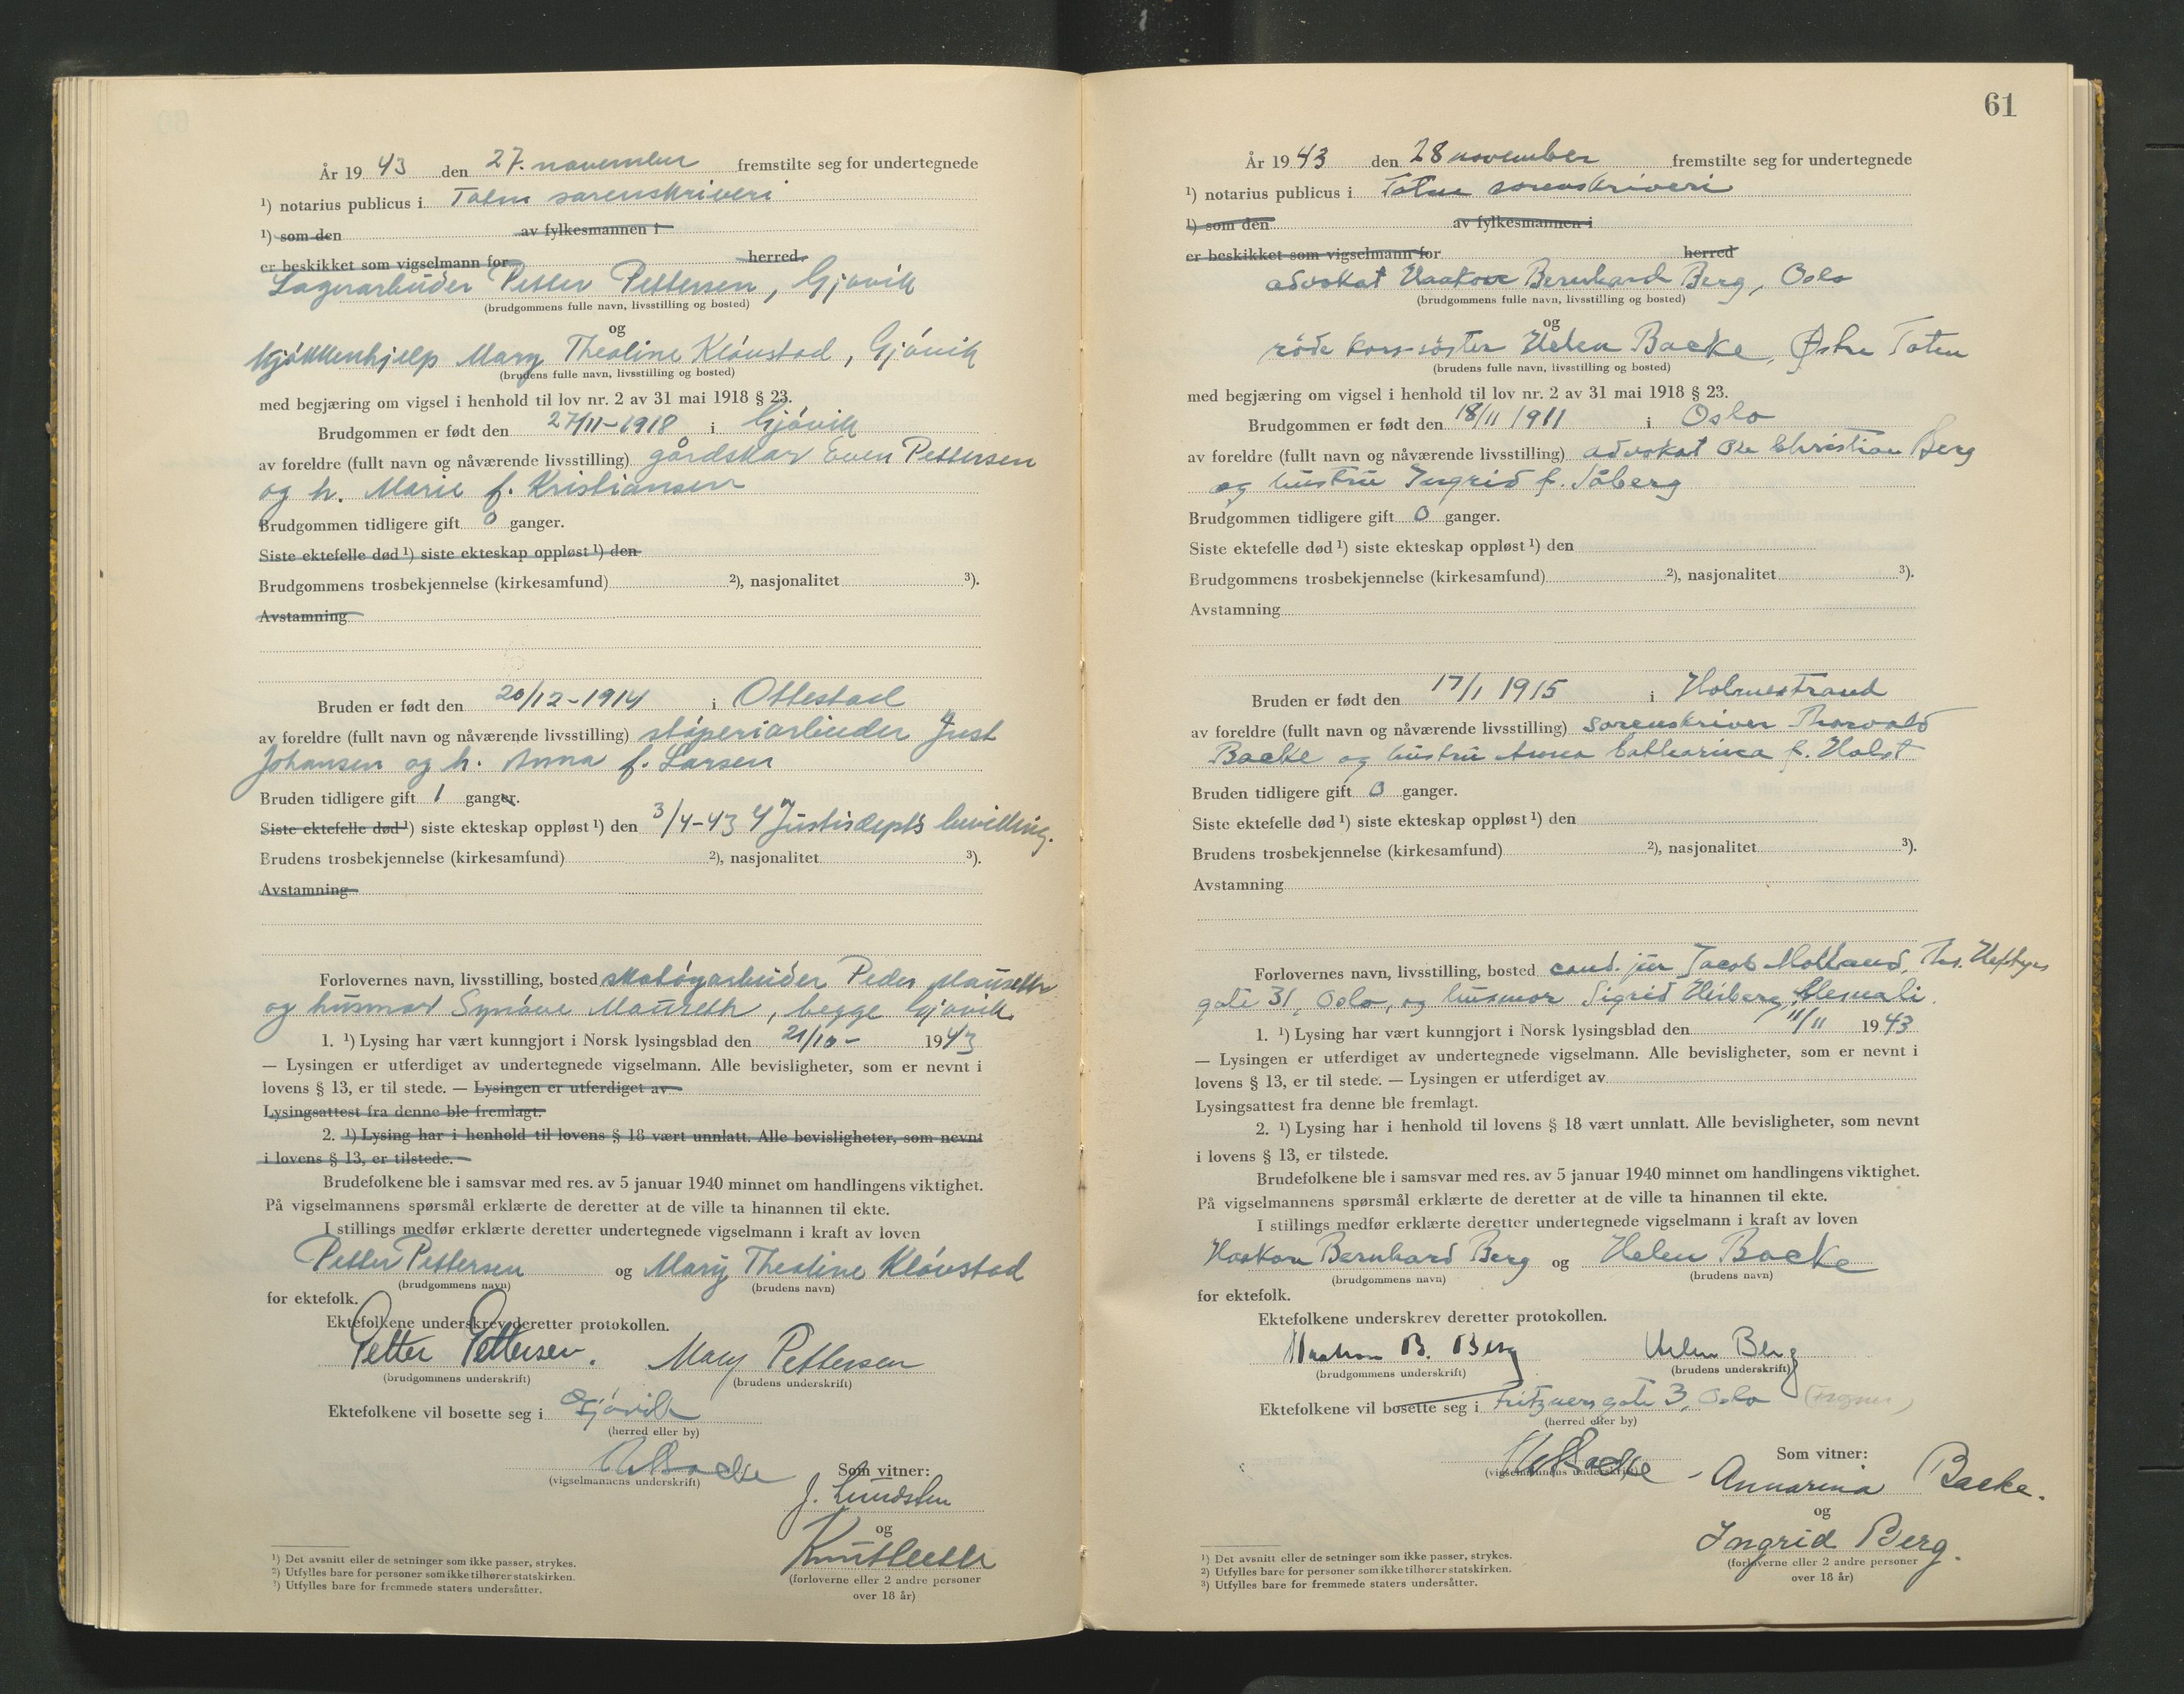 År 19 43 den 27. november fremstilte seg for undertegnede
¹) notarius publicus i Toten sorenskriveri
¹) som den av fylkesmannen i
er beskikket som vigselmann for herred.
Lagerarbeider Petter Pettersen, Gjøvik
(brudgommens fulle navn, livsstilling og bosted)
og
kjøkkenhjelp Mary Theoline Kløvstad, Gjøvik
(brudens fulle navn, livsstilling og bosted)
med begjæring om vigsel i henhold til lov nr. 2 av 31 mai 1918 § 23.
Brudgommen er født den 27/11-1918 i Gjøvik
av foreldre (fullt navn og nåværende livsstilling) gårdskar Even Pettersen
og h. Marie f. Kristiansen
Brudgommen tidligere gift 0 ganger.
Siste ektefelle død ¹) siste ekteskap oppløst ¹) den
Brudgommens trosbekjennelse (kirkesamfund) ²), nasjonalitet ³).
Avstamning
Bruden er født den 20/12-1914 i Ottestad
av foreldre (fullt navn og nåværende livsstilling) støperiarbeider Just
Johansen og h. Anna f. Larsen
Bruden tidligere gift 1 ganger.
Siste ektefelle død ¹) siste ekteskap oppløst ¹) den 3/4-43 Justisdepts bevilling.
Brudens trosbekjennelse (kirkesamfund) ²), nasjonalitet ³).
Avstamning
Forlovernes navn, livsstilling, bosted skotøyarbeider Peder Mauseth
og husmor Synøve Mauseth, begge Gjøvik
1. ¹) Lysing har vært kunngjort i Norsk lysingsblad den 21/10- 1943
— Lysingen er utferdiget av undertegnede vigselmann. Alle bevisligheter, som er nevnt i
lovens § 13, er til stede. — Lysingen er utferdiget av
Lysingsattest fra denne ble fremlagt.
2. ¹) Lysing har i henhold til lovens § 18 vært unnlatt. Alle bevisligheter, som nevnt
i lovens § 13, er tilstede.
Brudefolkene ble i samsvar med res. av 5 januar 1940 minnet om handlingens viktighet.
På vigselmannens spørsmål erklærte de deretter at de ville ta hinannen til ekte.
I stillings medfør erklærte deretter undertegnede vigselmann i kraft av loven
Petter Pettersen og Mary Theoline Kløvstad
(brudgommens navn) (brudens navn)
for ektefolk.
Ektefolkene underskrev deretter protokollen.
Petter Pettersen. Mary Pettersen
(brudgommens underskrift) (brudens underskrift)
Ektefolkene vil bosette seg i Gjøvik
(herred eller by)
Backe
(vigselmannens underskrift)
Som vitner:
J. Lundsten
og
(forloverne eller 2 andre personer
over 18 år)
¹) Det avsnitt eller de setninger som ikke passer, strykes.
²) Utfylles bare for personer som ikke tilhører statskirken.
³) Utfylles bare for fremmede staters undersåtter.
61
År 19 43 den 28 november fremstilte seg for undertegnede
¹) notarius publicus i Toten sorenskriveri
¹) som den av fylkesmannen i
er beskikket som vigselmann for herred
advokat Haakon Bernhard Berg, Oslo
(brudgommens fulle navn, livsstilling og bosted)
og
røde kors-søster Helen Backe, Østre Toten
(brudens fulle navn, livsstilling og bosted)
med begjæring om vigsel i henhold til lov nr. 2 av 31 mai 1918 § 23.
Brudgommen er født den 18/11 1911 i Oslo
av foreldre (fullt navn og nåværende livsstilling) advokat Ole Christian Berg
og hustru Ingrid f. Tåberg
Brudgommen tidligere gift 0 ganger.
Siste ektefelle død ¹) siste ekteskap oppløst ¹) den
Brudgommens trosbekjennelse (kirkesamfund) ²), nasjonalitet ³).
Avstamning
Bruden er født den 17/1 1915 i Holmestrand
av foreldre (fullt navn og nåværende livsstilling) sorenskriver Thorvald
Backe og hustru Anna Catharina f. Holst
Bruden tidligere gift 0 ganger.
Siste ektefelle død ¹) siste ekteskap oppløst ¹) den
Brudens trosbekjennelse (kirkesamfund) ²), nasjonalitet ³).
Avstamning
Forlovernes navn, livsstilling, bosted cand. jur Jacob Molland, Ths. Heftyes
gate 31, Oslo, og husmor Sigrid Heiberg,
1. ¹) Lysing har vært kunngjort i Norsk lysingsblad den 11/11 1943
— Lysingen er utferdiget av undertegnede vigselmann. Alle bevisligheter, som er nevnt i
lovens § 13, er til stede. — Lysingen er utferdiget av
Lysingsattest fra denne ble fremlagt.
2. ¹) Lysing har i henhold til lovens § 18 vært unnlatt. Alle bevisligheter, som nevnt
i lovens § 13, er tilstede.
Brudefolkene ble i samsvar med res. av 5 januar 1940 minnet om handlingens viktighet.
På vigselmannens spørsmål erklærte de deretter at de ville ta hinannen til ekte.
I stillings medfør erklærte deretter undertegnede vigselmann i kraft av loven
Haakon Bernhard Berg og Helen Backe
(brudgommens navn) (brudens navn)
for ektefolk.
Ektefolkene underskrev deretter protokollen.
Haakon B. Berg Helen Berg
(brudgommens underskrift) (brudens underskrift)
Ektefolkene vil bosette seg i Fritznersgate 3, Oslo
(herred eller by)
Backe
(vigselmannens underskrift)
Som vitner:
Annarina Backe.
og
Ingrid Berg.
(forloverne eller 2 andre personer
over 18 år)
¹) Det avsnitt eller de setninger som ikke passer, strykes.
²) Utfylles bare for personer som ikke tilhører statskirken.
³) Utfylles bare for fremmede staters undersåtter.